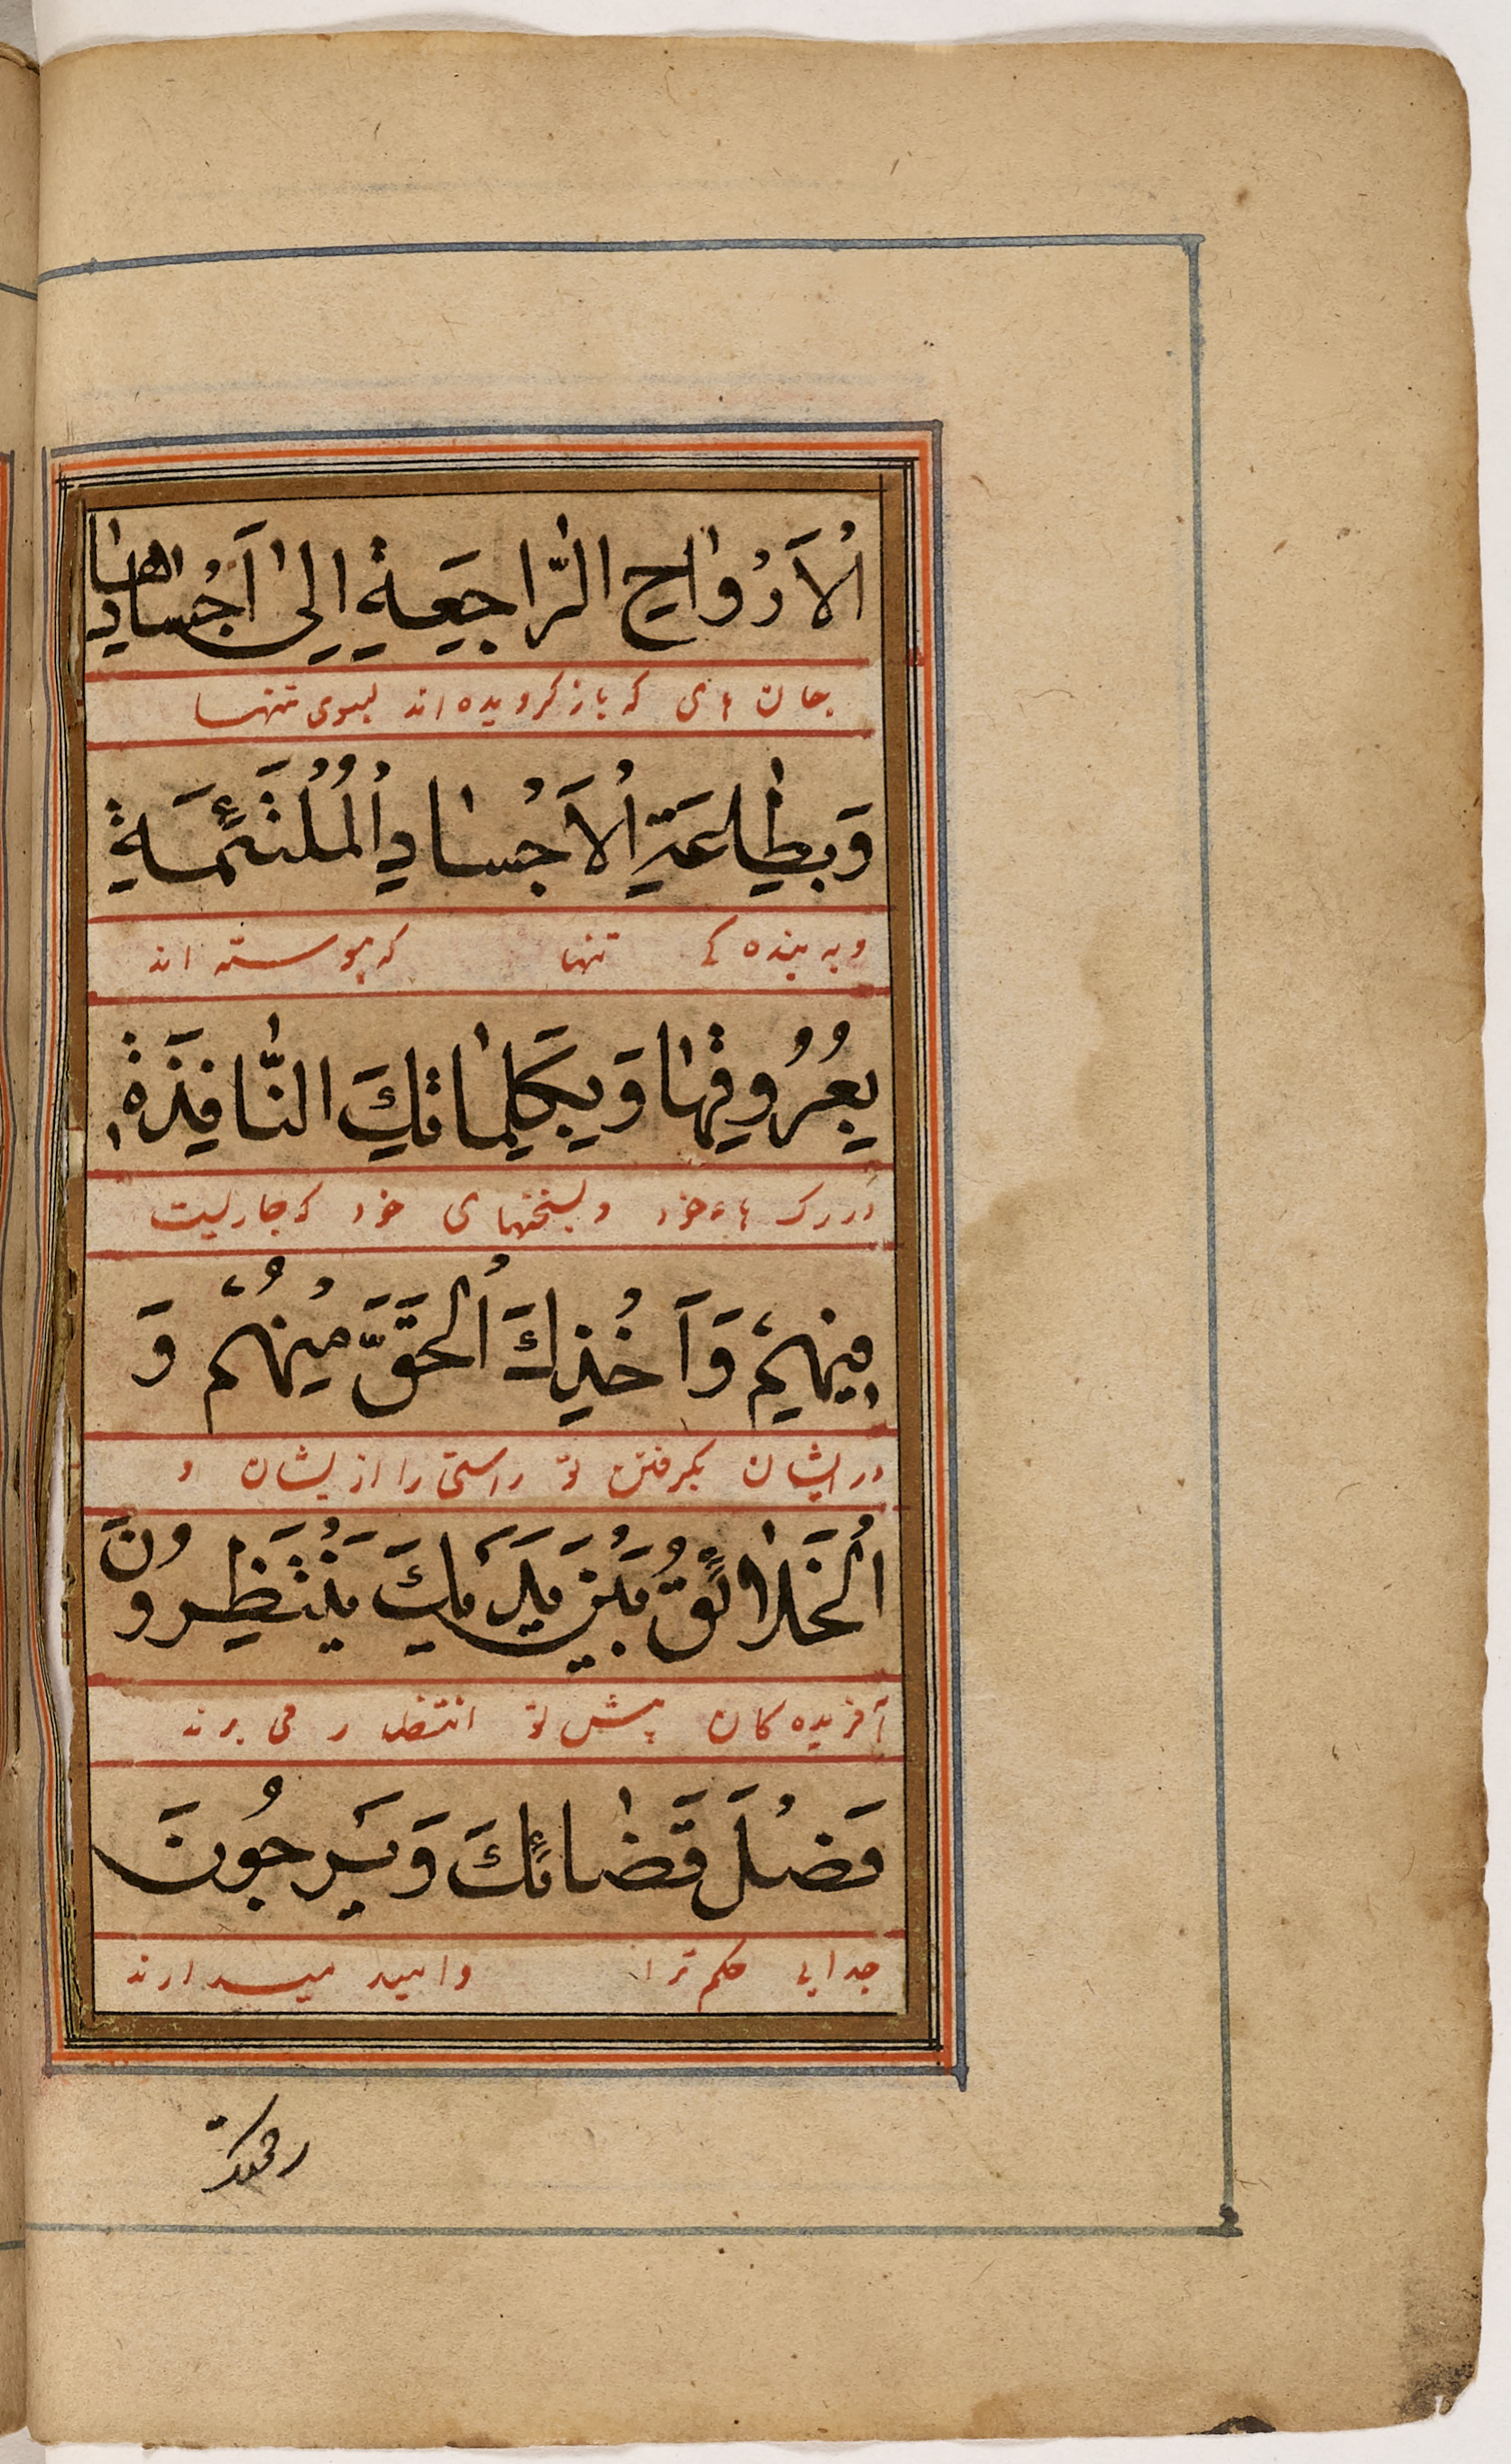 اَلْاَرْواحِ الرّاجَعَةِ اِلىٰ اَجْسادِها
جان های که باز کرویده اند بسوی تنها
وَبِطاعَةِ الْاَجْسادِ الْمُلْتَئِمَةِ
و به بنده کی تنها که پیوسته اند
بِعُرُوقِها وَبِكَلِماتِكَ النّافِذَةِ
در رک هاء خود و بسخنهای خود که جاریست
فِيهِمْ وَاَخْذِكَ الْحَقَّ مِنْهُمْ وَ
در ایشان بکرفتن تو راستی را از یشان و
الْخَلائِقُ بَيْنَ يَدَيْكَ يَنْتَظِرُونَ
آفریده کان پیش تو انتظار می برند
فَصْلَ قَضائِكَ وَيَرْجُونَ
جدایی حکم ترا و امید میدارند
رحمتک